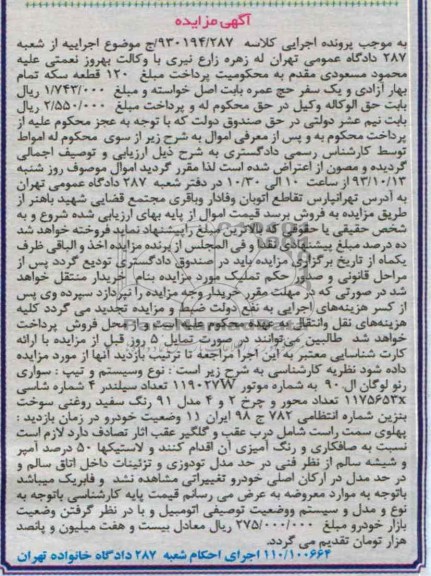 آگهی مزایده
به موجب پرونده اجرایی کلاسه ۹۳۰۱۹۴/۲۸۷/ج موضوع اجراییه از شعبه
۲۸۷ دادگاه عمومی تهران له زهره زارع نیری با وکالت بهروز نعمتی علیه
محمود مسعودی مقدم به محکومیت پرداخت مبلغ ۱۲۰ قطعه سکه تمام
بهار آزادی و یک سفر حج عمره بابت اصل خواسته و مبلغ ۱/۷۴۳/۰۰۰ ریال
بابت حق الوکاله وکیل در حق محکوم له و پرداخت مبلغ ۲/۵۵۰/۰۰۰ ریال
بابت نیم عشر دولتی در حق صندوق دولت که با توجه به عجز محکوم علیه از
پرداخت محکوم به و پس از معرفی اموال به شرح زیر از سوی محکوم له امواط
توسط کارشناس رسمی دادگستری به شرح ذیل ارزیابی و توصیف اجمالی
گردیده و مصون از اعتراض شده است لذا مقرر گردید اموال موصوف روز شنبه
۹۳/۱۰/۱۳ از ساعت ۱۰ الی ۱۰/۳۰ در دفتر شعبه ۲۸۷ دادگاه عمومی تهران
به آدرس تهرانپارس تقاطع اتوبان وفادار وباقری مجتمع قضایی شهید باهنر از
طریق مزایده به فروش برسد قیمت اموال از پایه بهای ارزیابی شده شروع و به
شخص حقیقی یا حقوقی که بالاترین مبلغ را پیشنهاد نماید فروخته خواهد شد
ده درصد مبلغ پیشنهادی نقدا و فی المجلس از برنده مزایده اخذ و الباقی ظرف
یکماه از تاریخ برگزاری مزایده باید در صندوق دادگستری تودیع گردد پس از
مراحل قانونی و صدور حکم تملیک مورد مزایده بنام خریدار منتقل خواهد
شد در صورتی که در مهلت مقرر خریدار وجه مزایده را نپردازد سپرده وی پس
از کسر هزینه‌های اجرایی به نفع دولت ضبط و مزایده تجدید می گردد کلیه
هزینه‌های نقل وانتقال به عهده محکوم علیه است و از محل فروش پرداخت
خواهد شد طالبین می‌توانند در صورت تمایل ۵ روز قبل از مزایده با ارائه
کارت شناسایی معتبر به این اجرا مراجعه تا ترتیب بازدید آنها از مورد مزایده
داده شود نظریه کارشناسی به شرح زیر است : نوع وسیستم و تیپ : سواری
رنو لوگان ال. ۹۰ به شماره موتور ۱۱۹۰۲۷W تعداد سیلندر ۴ شماره شاسی
۱۱۷۵۶۵۳x تعداد محور و چرخ ۲ و ۴ مدل ۹۱ رنگ سفید روغنی سوخت
بنزین شماره انتظامی ۷۸۲ ج ۹۸ ایران ۱۱ وضعیت خودرو در زمان بازدید :
پهلوی سمت راست شامل درب عقب و گلگیر عقب اثار تصادف دارد لازم است
نسبت به صافکاری و رنگ آمیزی آن اقدام کنند و لاستیکها ۵۰ درصد آمپر
و شیشه سالم از نظر فنی در حد مدل تودوزی و تزئینات داخل اتاق سالم و
در حد مدل در ارکان اصلی خودرو تغییراتی مشاهده نشد و فابریک میباشد
باتوجه به موارد معروضه به عرض می رسانم قیمت پایه کارشناسی باتوجه به
نوع و مدل و سیستم ووضعیت توصیفی اتومبیل و با در نظر گرفتن وضعیت
بازار خودرو مبلغ ۲۷۵/۰۰۰/۰۰۰ ریال معادل بیست و هفت میلیون و پانصد
هزار تومان تقدیم می گردد.
۱۱۰/۱۰۰۶۶۴ اجرای احکام شعبه ۲۸۷ دادگاه خانواده تهران